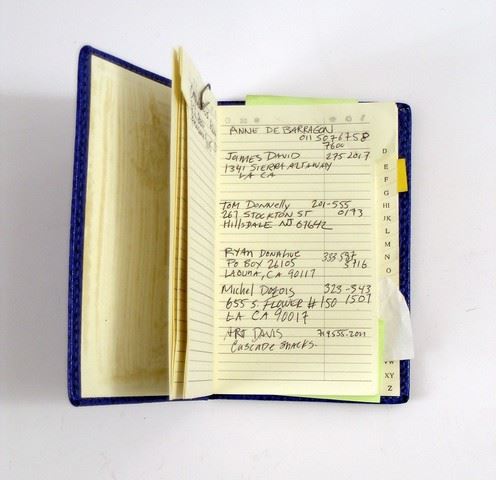 ANNE DE BARRAGON
011 5076758
7600
JAMES DAVID 275 2017
1341 SIERRA ALTA WAY
LA CA
TOM DONNELLY 201-555
267 STOCKTON ST 0193
HILLSDALE NJ 07642
RYAN DONAHUE
PO BOX 26105 5716
LAGUNA, CA 90117
MICHEL DUBOIS 323-543
655 S. FLOWER #150 1507
LA CA 90017
ART DAVIS 714 555-2011
CASCADE SNACKS.
D
E
F
G
HI
J
K
L
M
N
O
VW
XY
Z